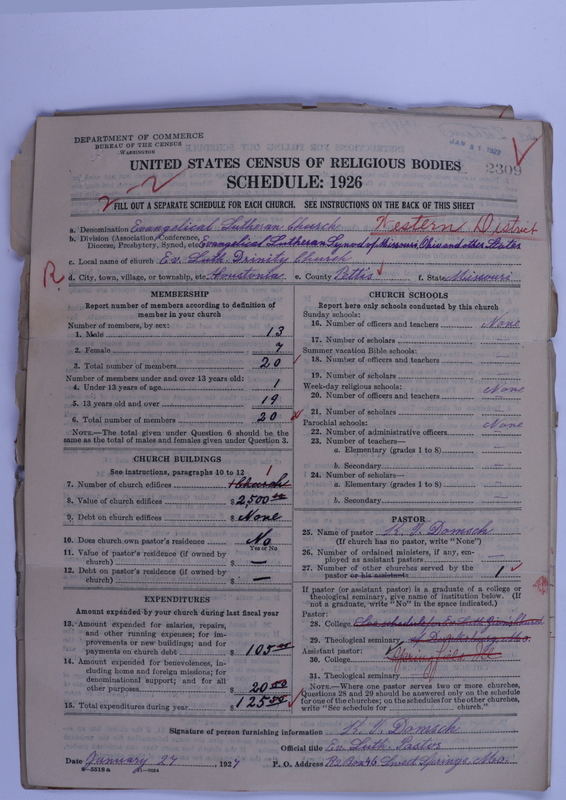 DEPARTMENT OF COMMERCE
BUREAU OF THE CENSUS
WASHINGTON
UNITED STATES CENSUS OF RELIGIOUS BODIES
2309
SCHEDULE: 1926
2-2
FILL OUT A SEPARATE SCHEDULE FOR EACH CHURCH. SEE INSTRUCTIONS ON THE BACK OF THIS SHEET
a. Denomination Evangelical Lutheran Church
Western District
b. Division (Association, Conference, Diocese, Presbytery, Synod, etc. Evangelical Lutheran Synod of Missouri Ohio and other States
c. Local name of church Ev. Luth Trinity Church
R
d. City, town, village, or township, etc. Houstonia e. County Pettis f. State Missouri
MEMBERSHIP
Report number of members according to definition of
member in your church
Number of members, by sex:
1. Male 13
2. Female 7
3. Total number of members 20
Number of members under and over 13 years old:
4. Under 13 years of age 1
5. 13 years old and over 19
6. Total number of members 20
NOTE.—The total given under Question 6 should be the
same as the total of males and females given under Question 3.
CHURCH BUILDINGS
See instructions, paragraphs 10 to 12
7. Number of church edifices 1 Church
8. Value of church edifices $2,500 00
9. Debt on church edifices $ None
10. Does church own pastor's residence? No
Yes or No
11. Value of pastor's residence (if owned by
church) $ —
12. Debt on pastor's residence (if owned by
church) $ —
EXPENDITURES
Amount expended by your church during last fiscal year
13. Amount expended for salaries, repairs,
and other running expenses; for im-
provements or new buildings; and for
payments on church debt $ 105 00
14. Amount expended for benevolences, in-
cluding home and foreign missions; for
denominational support; and for all
other purposes $ 20 00
15. Total expenditures during year $ 125 00
CHURCH SCHOOLS
Report here only schools conducted by this church
Sunday schools:
16. Number of officers and teachers None
17. Number of scholars —
Summer vacation Bible schools:
18. Number of officers and teachers —
19. Number of scholars —
Week-day religious schools:
20. Number of officers and teachers None
21. Number of scholars —
Parochial schools:
22. Number of administrative officers None
23. Number of teachers—
a. Elementary (grades 1 to 8) —
b. Secondary —
24. Number of scholars—
a. Elementary (grades 1 to 8) —
b. Secondary —
PASTOR
25. Name of pastor Domsch
(If church has no pastor, write "None")
26. Number of ordained ministers, if any, em-
ployed as assistant pastors —
27. Number of other churches served by the
pastor or his assistants 1
If pastor (or assistant pastor) is a graduate of a college or
theological seminary, give name of institution below. (If
not a graduate, write "No" in the space indicated.)
Pastor:
28. College See schedule for Ev. Luth
29. Theological seminary of
Assistant pastor: Springfield Ill
30. College
31. Theological seminary
NOTE.—Where one pastor serves two or more churches,
Questions 28 and 29 should be answered only on the schedule
for one of the churches; on the schedules for the other churches,
write "See schedule for church."
Signature of person furnishing information Domsch
Official title Ev. Luth. Pastor
Date January 27, 1927 P. O. Address Box 46 Sweet Springs, Mo.